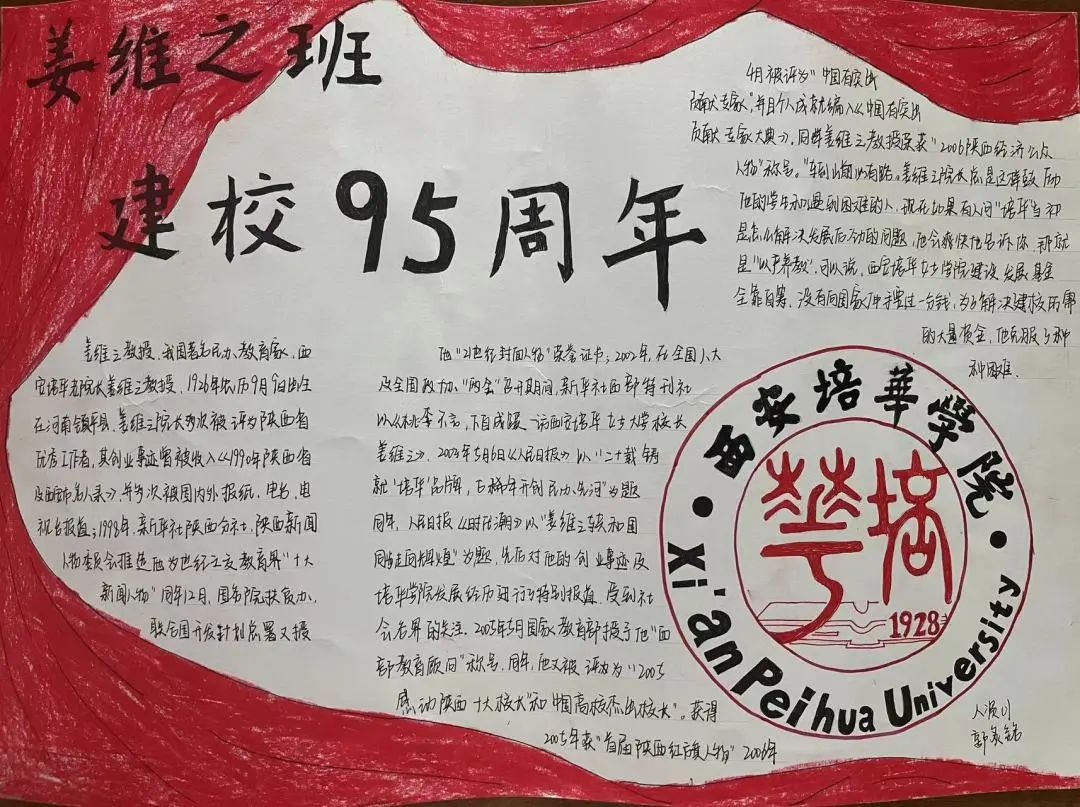 姜维之班
建校95周年
姜维之教授,我国著名民办教育家,西
安培华学院院长姜维之教授,1926年农历9月9日出生
在河南镇平县,姜维之院长多次被评为陕西省
优秀工作者,其创业事迹曾被收入《1990年陕西省
名人录》,并多次被国内外报纸、电台、电
视台报道;1998年,新华社陕西分社、陕西新闻
人物委员会推选他为世纪之交教育界"十大
新闻人物"同年12月,国务院扶贫办、
联合国开发计划总署又授
他"21世纪封面人物"荣誉证书;2002年,在全国人大
及全国政协"两会"召开期间,新华社西部特刊社
以《桃李不言,下自成蹊——访西安培华女子大学校长
姜维之》,2003年5月6日《人民日报》以"二十载铸
就"培华"品牌,七旬年开创民办先河"为题
同年,人民日报《时代潮》以"姜维之与共和国
同走向辉煌"为题,先后对他的创业事迹及
培华学院发展经历进行了特别报道,受到社
会各界的关注。2005年5月国家教育部授予他"西
部教育顾问"称号,同年,他又被评为"2005
感动陕西十大校长"和"中国高校杰出校长"。获得
2005年获"首届陕西红旗人物"2006年
4月被评为"中国有突出
贡献专家",并且个人成就编入《中国有突出
贡献专家大典》,同时姜维之教授荣获"2006陕西经济公众
人物"称号。"车到山前必有路。姜维之院长总是这样鼓励
他的学生和遇到困难的人,现在如果有人问"培华"当初
是怎么解决发展后劲的问题,他会爽快地告诉你,那就
是"以产养教",可以说,西安培华女子学院建设发展基金
全靠自筹,没有向国家伸手要过一分钱,为了解决建校所需
的大量资金,他克服了种
种困难.
西安培華學院
培華
1928
Xi'an Peihua University